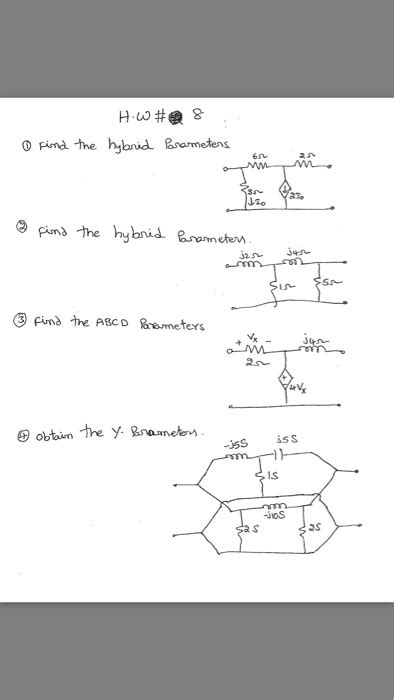 H.W# 8
① Find the hybrid Parameters
6Ω 2Ω
8Ω
↓I₀ 2I₀
② Find the hybrid Parameters.
j2Ω j4Ω
1Ω 5Ω
③ Find the ABCD Parameters
+ Vx - j4Ω
2Ω
+
4Vx
④ obtain the Y- Parameters.
-j5S j5S
1S
-j10S
2S 2S